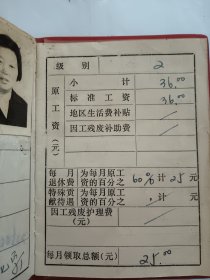 级 别 2
原工资(元)
小 计 36.00
标准工资 36.00
地区生活费补贴 /
因工残废补助费 /
每月退休费 为每月原工资的百分之 60% 计 25 元
特殊贡献待遇 为每月原工资的百分之 , 计 元
因工残废护理费(元) /
每月领取总额(元) 25.00